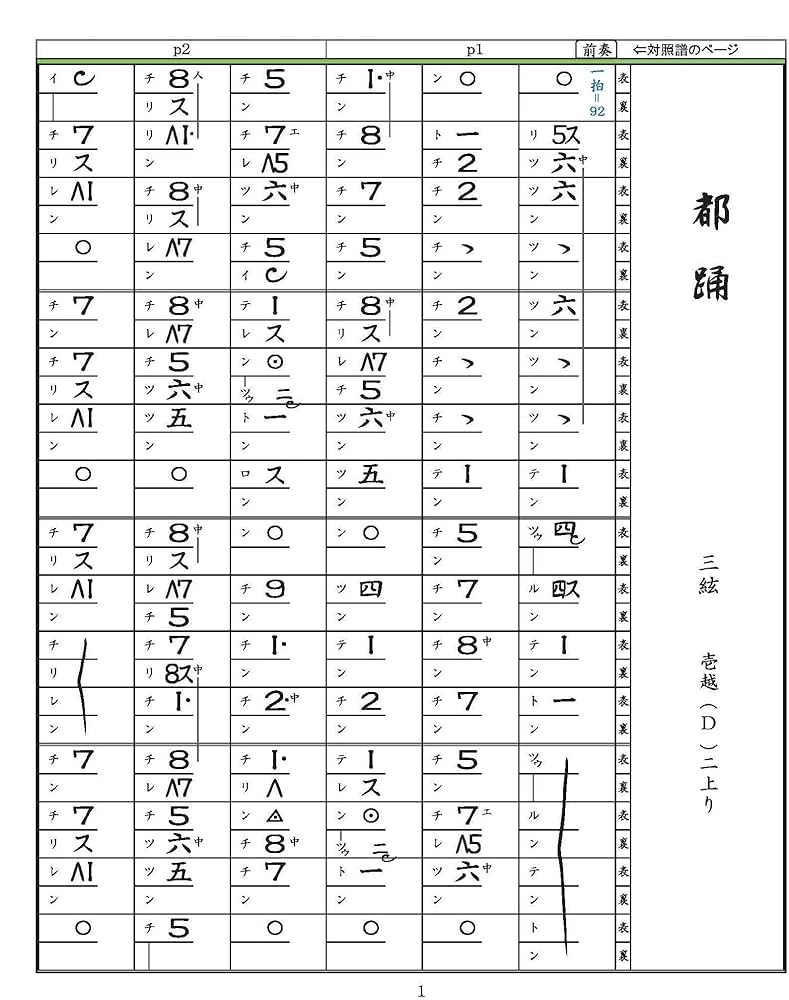 p2 p1 前奏 ⇐対照譜のページ
都踊
三絃 壱越(D)二上り
一拍=92
表 裏 表 裏 表 裏 表 裏 表 裏 表 裏 表 裏 表 裏 表 裏 表 裏 表 裏 表 裏 表 裏 表 裏 表 裏 表 裏
○ リ 5ス ツ 六中 ツ 六 ン ツ ヽ ン ツ 六 ン ツ ヽ ン ツ ヽ ン テ 1 ン ツゥ 四 ル 四ス ン テ 1 ン ト 一 ン ツゥ ル ン テ ン ト ン
ン ○ ト 一 チ 2 チ 2 ン チ ヽ ン チ 2 ン チ ヽ ン チ ヽ ン テ 1 ン チ 5 ン チ 7 ン チ 8中 ン チ 7 ン チ 5 ン チ 7エ レ Λ5 ツ 六中 ン ○
チ 1・中 ン チ 8 ン チ 7 ン チ 5 ン チ 8中 リ ス レ Λ7 チ 5 ツ 六中 ン ツ 五 ン ン ○ ツ 四 ン テ 1 ン チ 2 ン テ 1 レ ス ン ⊙ ツゥ 二 ト 一 ン ○
チ 5 ン チ 7エ レ Λ5 ツ 六中 ン チ 5 イ テ 1 レ ス ン ⊙ ツゥ 二 ト 一 ン ロ ス ン ン ○ チ 9 ン チ 1・ ン チ 2・中 ン チ 1・ リ Λ ン チ 8中 チ 7 ン ○
チ 8人 リ ス リ Λ1・ ン チ 8中 リ ス レ Λ7 ン チ 8中 レ Λ7 チ 5 ツ 六中 ツ 五 ン ○ チ 8中 リ ス レ Λ7 チ 5 チ 7 リ 8ス中 チ 1・ ン チ 8 レ Λ7 チ 5 ツ 六中 ツ 五 ン チ 5
イ チ 7 リ ス レ Λ1 ン ○ チ 7 ン チ 7 リ ス レ Λ1 ン ○ チ 7 リ ス レ Λ1 ン チ リ レ ン チ 7 ン チ 7 リ ス レ Λ1 ン ○
1